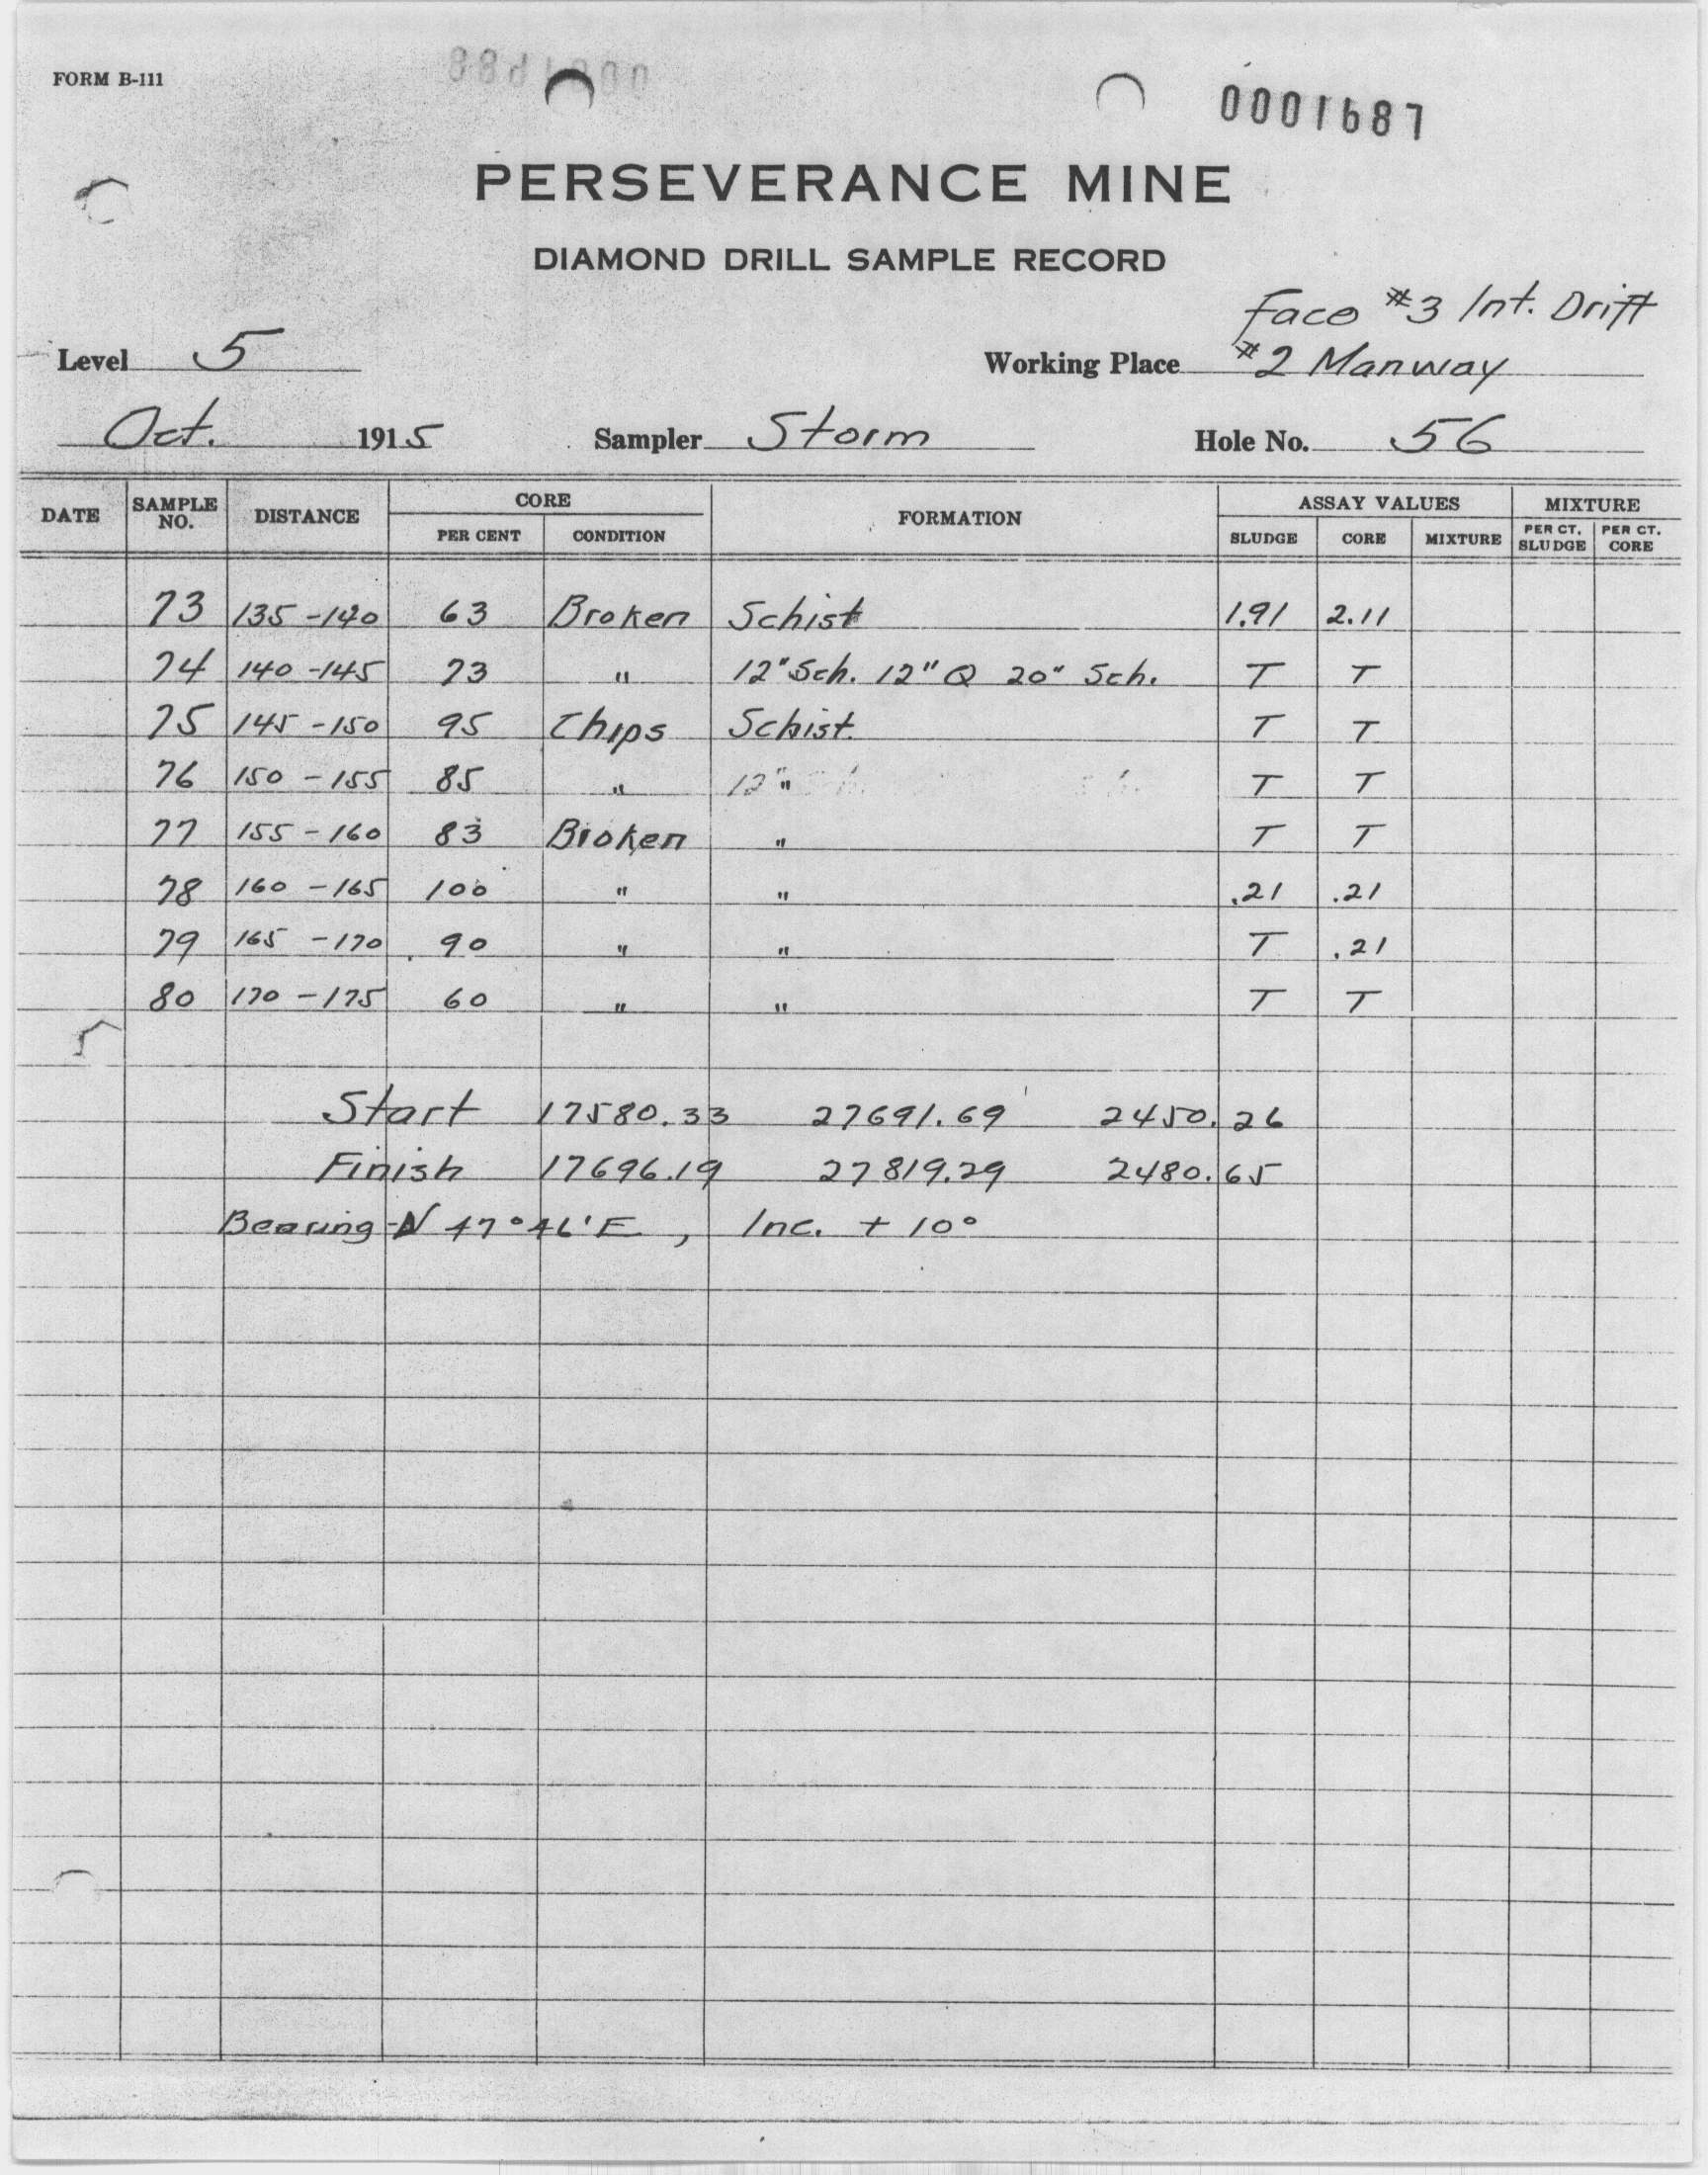 FORM B-111
0001687
PERSEVERANCE MINE
DIAMOND DRILL SAMPLE RECORD
Face #3 Int. Drift
Level 5 Working Place #2 Manway
Oct. 1915 Sampler Storm Hole No. 56
DATE SAMPLE NO. DISTANCE CORE PER CENT CONDITION FORMATION ASSAY VALUES SLUDGE CORE MIXTURE MIXTURE PER CT. SLUDGE PER CT. CORE
73 135-140 63 Broken Schist 1.91 2.11
74 140-145 73 " 12" Sch. 12" Q 20" Sch. T T
75 145-150 95 Chips Schist. T T
76 150-155 85 " " T T
77 155-160 83 Broken " T T
78 160-165 100 " " .21 .21
79 165-170 90 " " T .21
80 170-175 60 " " T T
Start 17580.33 27691.69 2450.26
Finish 17696.19 27819.29 2480.65
Bearing-N 47°46'E, Inc. + 10°